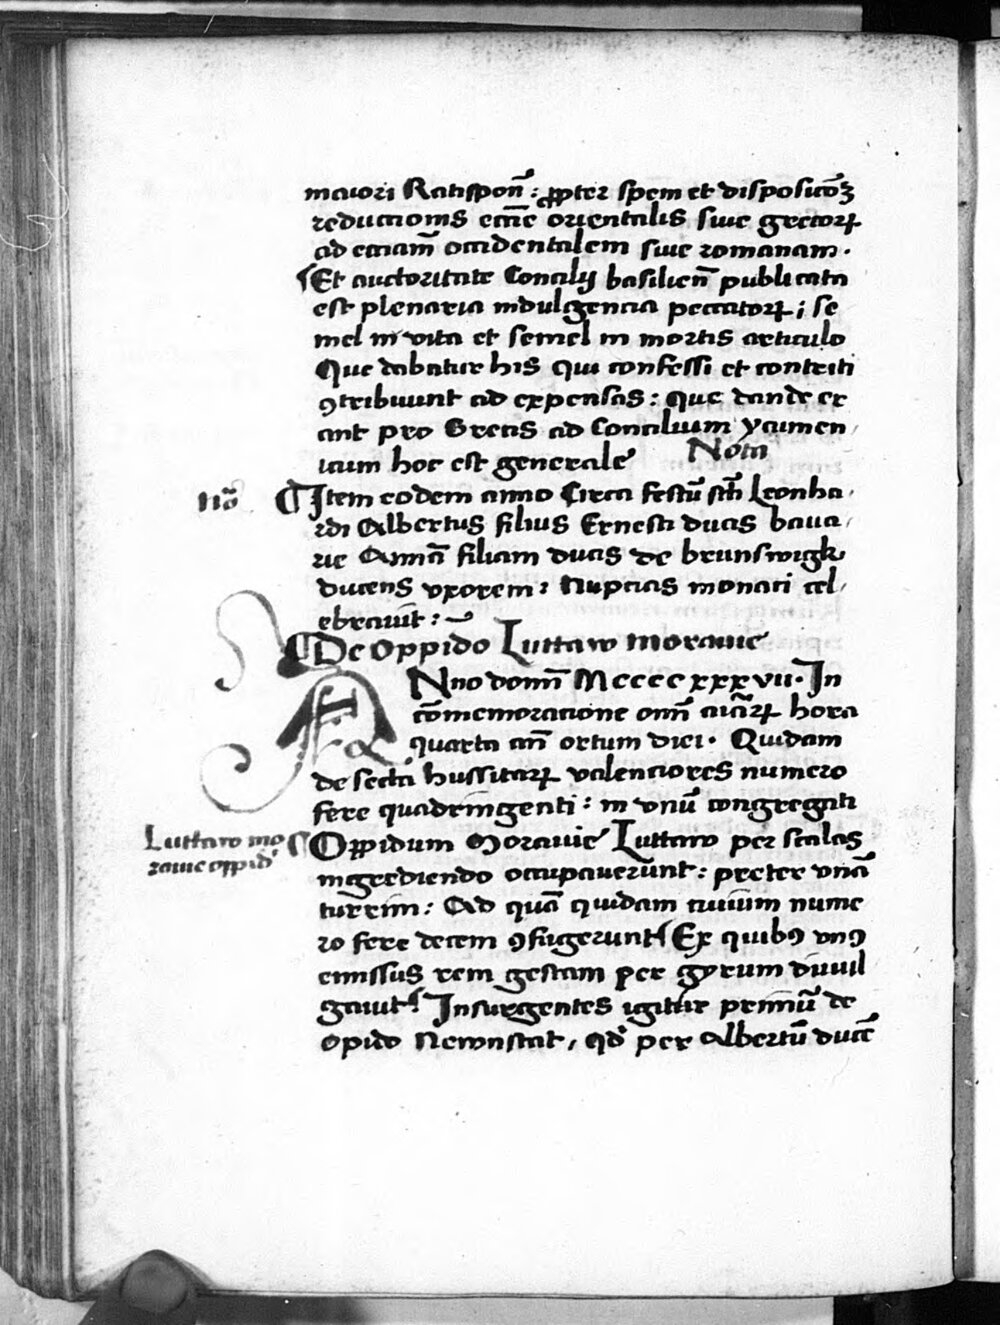 maiori Ratispon̄: ꝓpter spem et disposicōꝫ
reductionis eccīe orientalis siue grecorꝝ
ad ecciam̄ occidentalem siue romanam.
Et auctoritate Concilij basilien̄ publicata
est plenaria indulgencia peccatorꝝ; se
mel in vita et semel in mortis articulo
Que dabatur his qui confessi et contriti
ꝯtribuunt ad expensas: que dande er
ant pro Grecis ad Concilium ycumen
icum hoc est generale
Nota
Nō
Item eodem anno Circa festū sc̄i Leonha
rdi Albertus filius Ernesti ducis baua
rie Annā filiam ducis de brunswigk
ducens vxorem: Nupcias monaci cel
ebrauit:
De Oppido Luttaw morauie
Anno domī Mccccxxxvii. In
cōmemoracione om̄ aiārꝝ hora
quarta an̄ ortum diei. Quidam
de secta hussitarꝝ valenciores numero
fere quadringenti: in vnū congregati
Luttaw mo
rauie oppid̄
Oppidum Morauie Luttaw per scalas
ingrediendo occupauerunt: preter vnā
turrim: Ad quā quidam ciuium nume
ro fere decem ꝯfugerunt Ex quibꝯ vnꝯ
emissus rem gestam per gyrum diuul
gauit Insurgentes igitur primū de
opido Newnstat, qd̄ per Albertū ducē